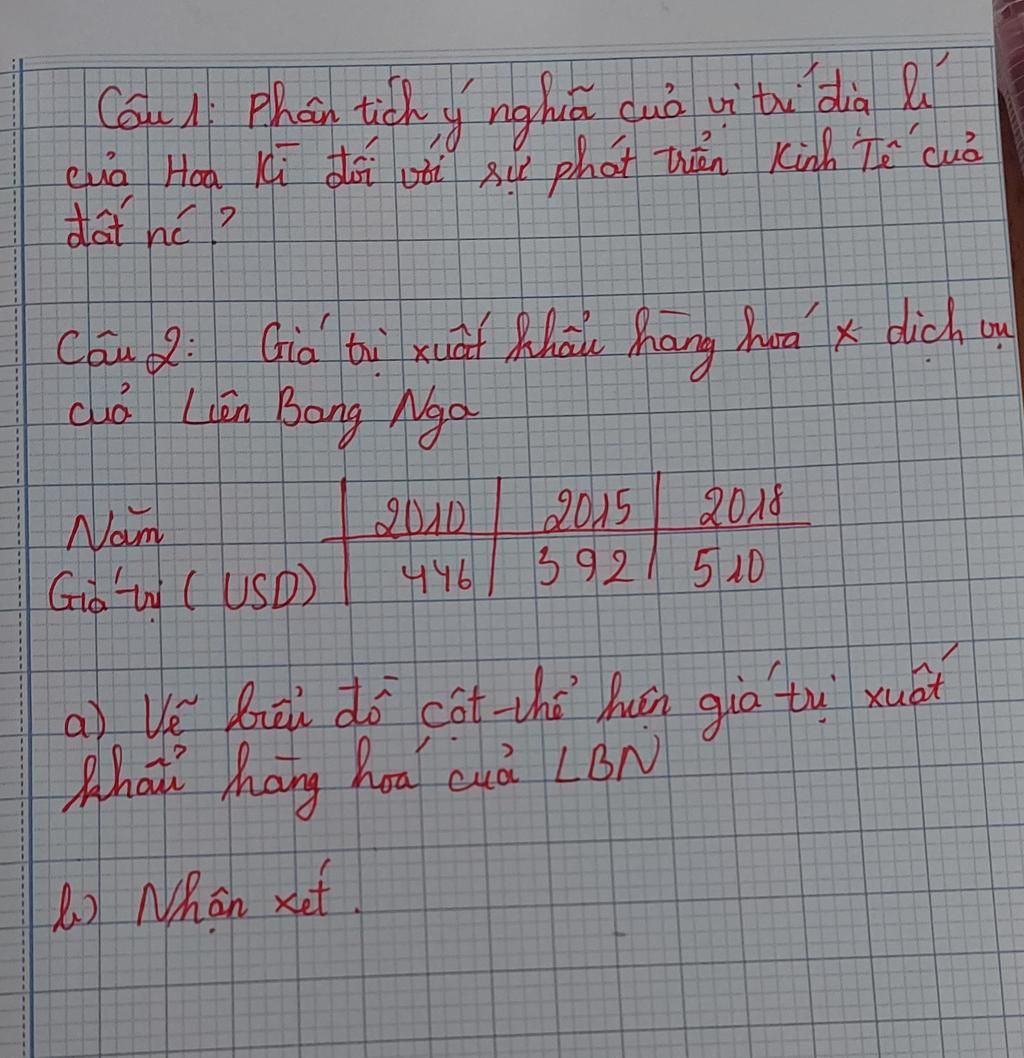 Câu 1: Phân tích ý nghĩa của vị trí địa lí
của Hoa Kì đối với sự phát triển Kinh Tế của
đất nc ?
Câu 2: Giá trị xuất khẩu hàng hoá x dịch vụ
của Liên Bang Nga
Năm 2010 2015 2018
Giá trị ( USD) 446 392 510
a) Vẽ biểu đồ cột thể hiện giá trị xuất
khẩu hàng hoá của LBN
b) Nhận xét.